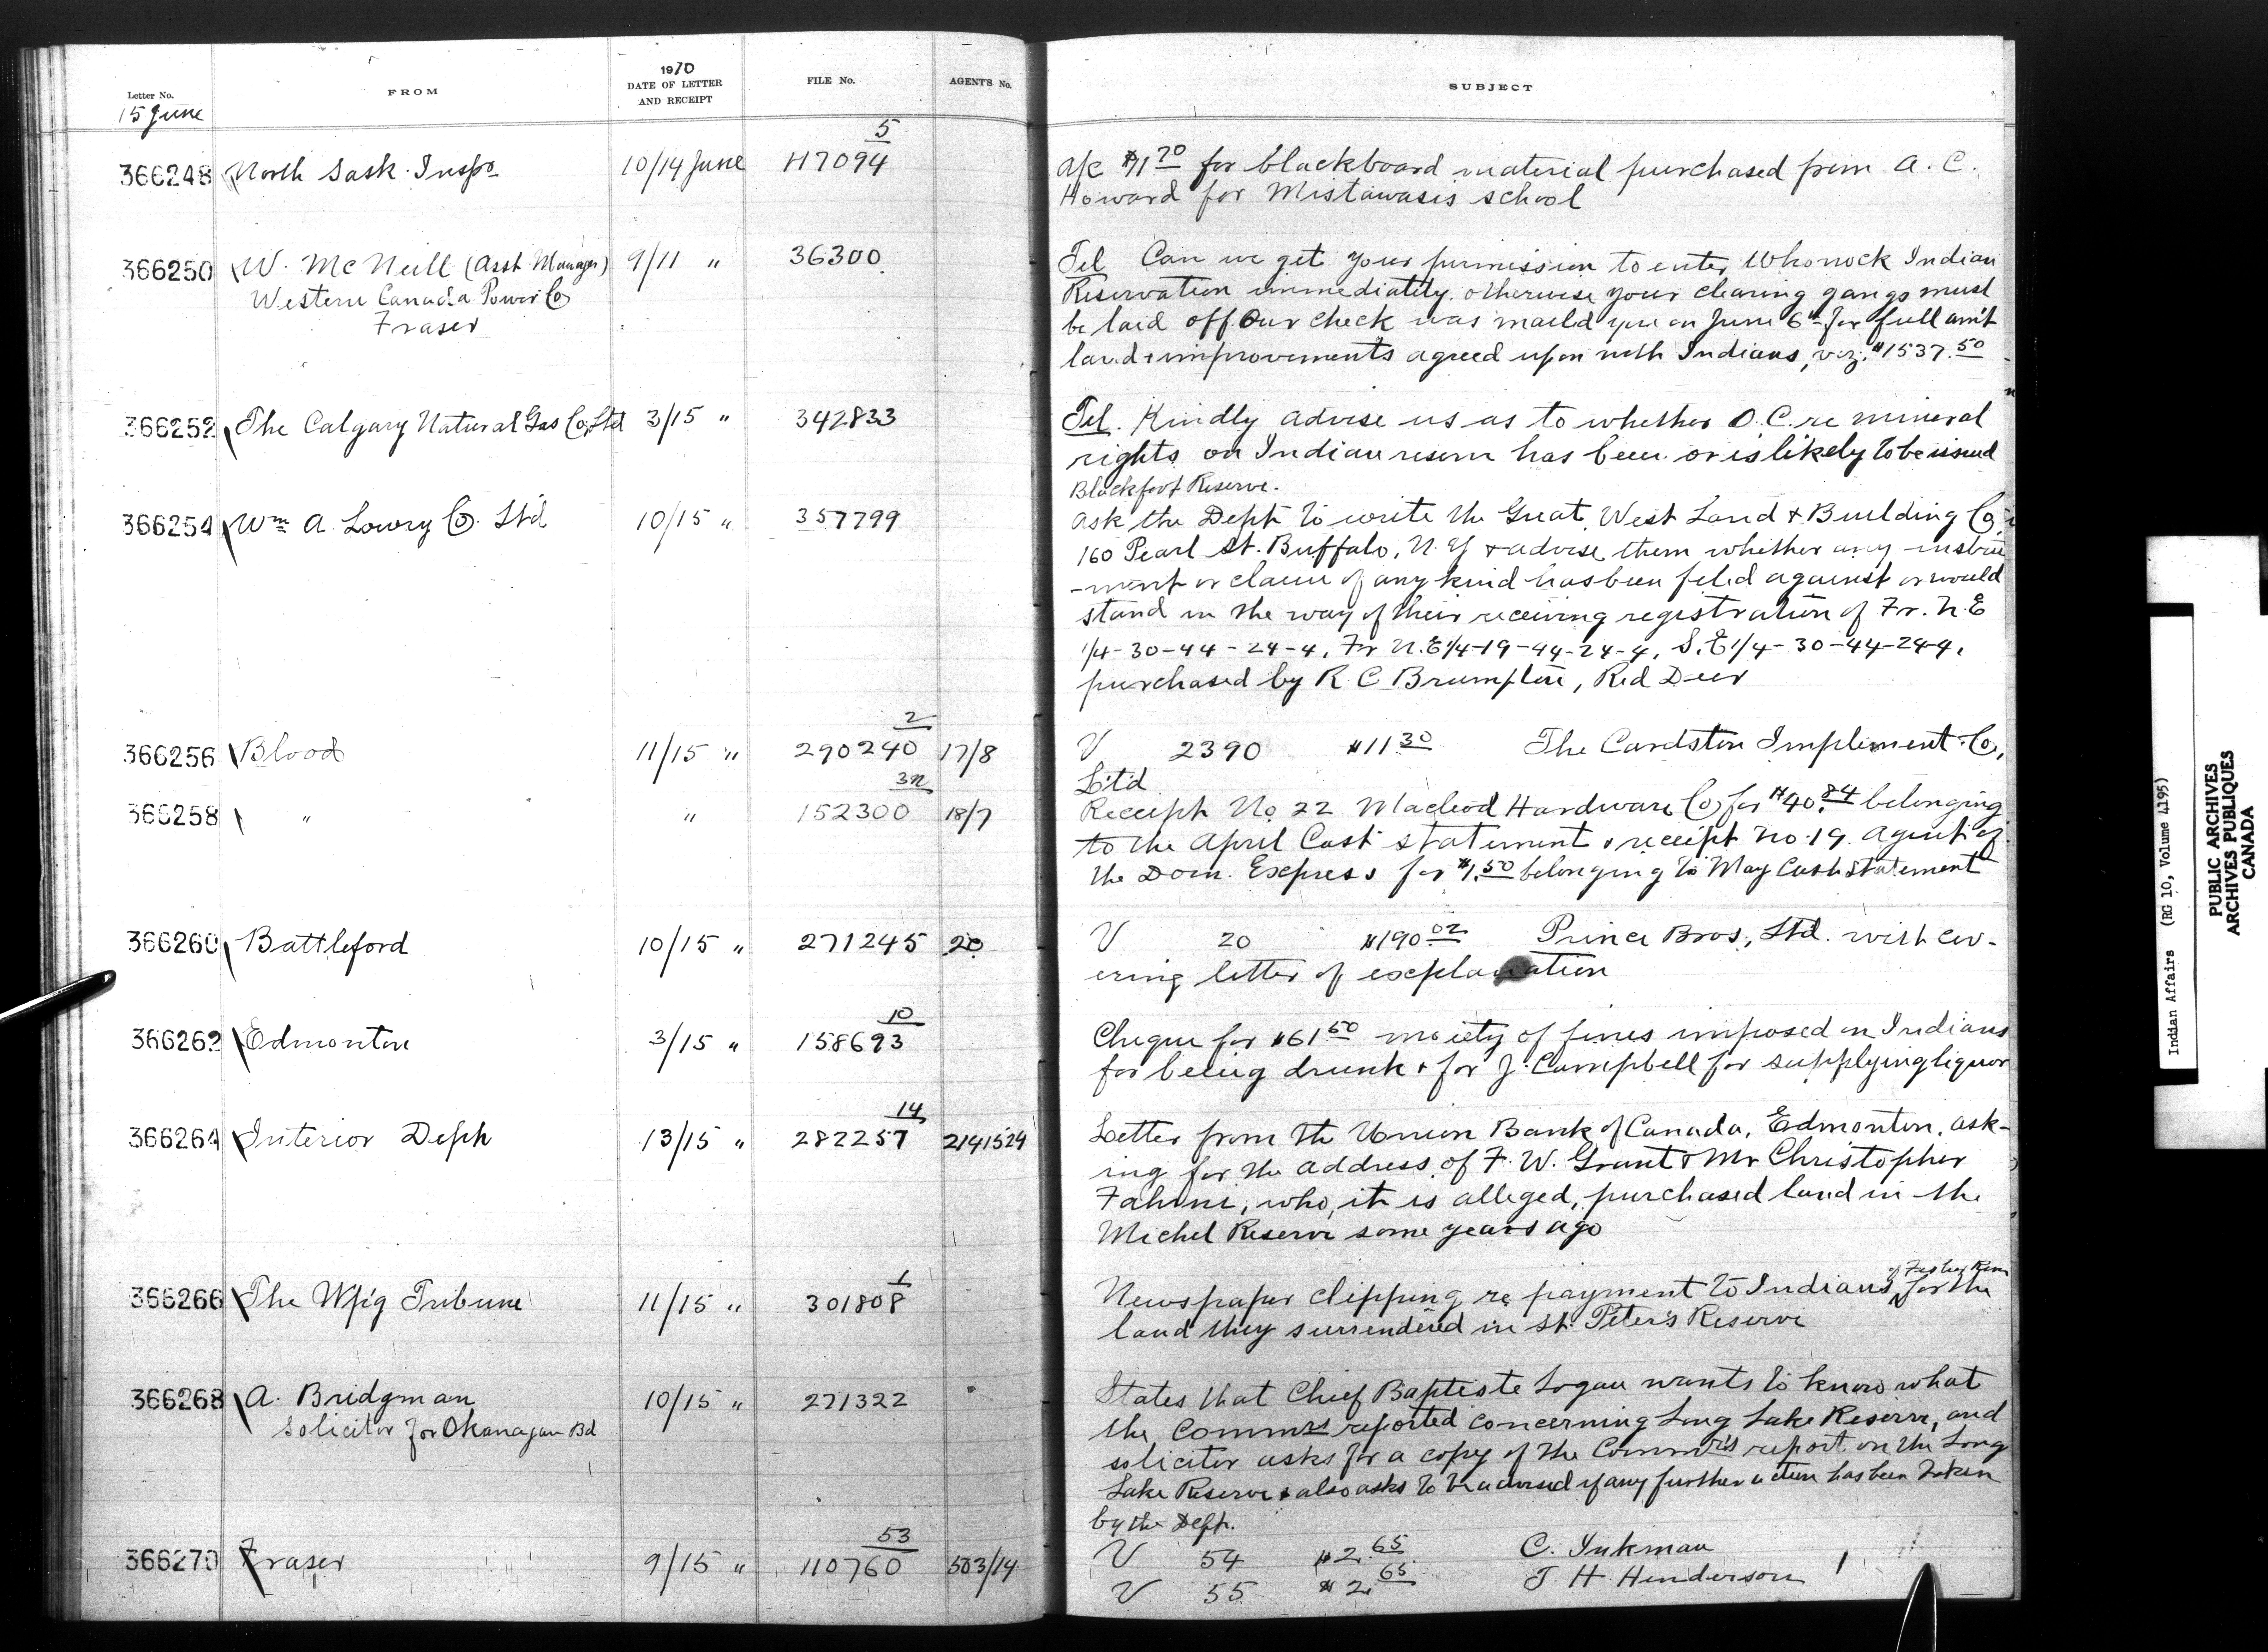 Letter No.
FROM
1910
DATE OF LETTER
AND RECEIPT
FILE No.
AGENT'S No.
SUBJECT
15 June
5
366248 North Sask. Insp. 10/14 June 117094
a/c $1 70 for blackboard material purchased from A. C.
Howard for Mistawasis school
366250 W. McNeill (Asst. Manager) 9/11 " 36300
Western Canada Power Co
Fraser
Tel Can we get your permission to enter Whonock Indian
Reservation immediately. otherwise your clearing gangs must
be laid off. Our check was mailed you on June 6th for full am't
land & improvements agreed upon with Indians, viz: $1537.50
366252 The Calgary Natural Gas Co, Ltd 3/15 " 342833
Tel. Kindly advise us as to whether O.C. re mineral
rights on Indian reserve has been or is likely to be issued
Blackfoot Reserve.
366254 Wm A. Lowry Co. Ltd 10/15 " 357799
Ask the Dept to write the Great West Land & Building Co,
160 Pearl St. Buffalo, N.Y & advise them whether any instru
-ment or claim of any kind has been filed against or would
stand in the way of their receiving registration of Fr. N.E
1/4-30-44-24-4, Fr N.E 1/4-19-44-24-4, S.E 1/4-30-44-24-4,
purchased by R. C Brumpton, Red Deer
2
366256 Blood 11/15 " 290240 17/8
V 2390 $11 30 The Cardston Implement Co,
Ltd
366258 " " 152300 18/7
Receipt No 22 Macleod Hardware Co, for $40.84 belonging
to the April Cash statement & receipt no. 19. Agent of
the Dom. Express for $1.50 belonging to May Cash Statement
366260 Battleford 10/15 " 271245 20
V 20 $190.02 Prince Bros., Ltd. with cov-
ering letter of explanation
10
366262 Edmonton 3/15 " 158693
Cheque for $61 50 moiety of fines imposed on Indians
for being drunk & for J. Campbell for supplying liquor
14
366264 Interior Dept 13/15 " 282257 2141524
Letter from the Union Bank of Canada, Edmonton, ask-
ing for the address of F. W. Grant & Mr Christopher
Fahrni, who, it is alleged, purchased land in the
Michel Reserve some years ago
1
366266 The Wpig Tribune 11/15 " 301808
Newspaper clipping re payment to Indians of Fisher River for the
land they surrendered in St. Peter's Reserve
366268 A. Bridgman 10/15 " 271322
Solicitor for Okanagan Bd
States that Chief Baptiste Logan wants to know what
the Commrs reported concerning Long Lake Reserve, and
solicitor asks for a copy of the Commr's report on the Long
Lake Reserve & also asks to be advised if any further action has been taken
by the Dept.
53
366270 Fraser 9/15 " 110760 503/14
V 54 $2.65 C. Inkman
V 55 $2.65 T. H. Henderson
Indian Affairs (RG 10, Volume 4195)
PUBLIC ARCHIVES
ARCHIVES PUBLIQUES
CANADA